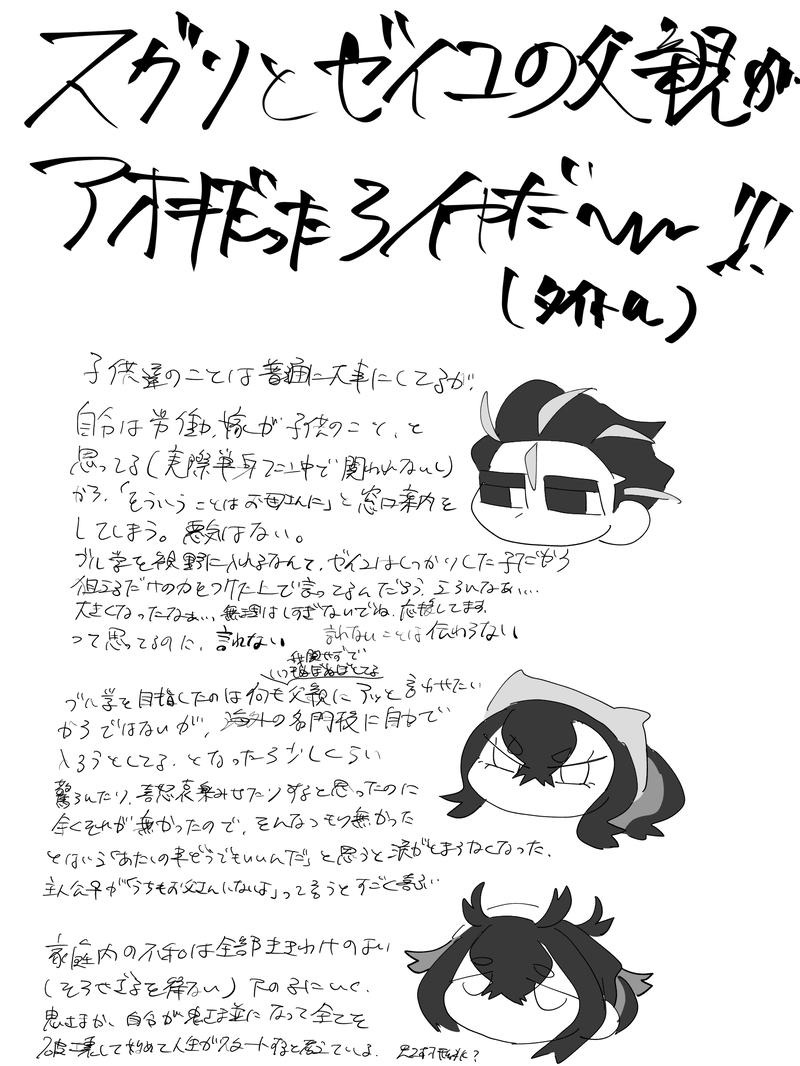 スグリとゼイユの父親が
アオキだったらイヤだ〜!!
(タイトル)
子供達のことは普通に大事にしてるが、
自分は労働、嫁が子供のこと、と
思ってる(実際単身フニ中で関われないし)
から、「そういうことはお母さんに」と窓口案内を
してしまう。悪気はない。
ブル学を視野に入れるなんて、ゼイユはしっかりした子だから
狙えるだけの力をつけた上で言ってるんだろう、えらいなぁ…
大きくなったなぁ…、無理はしすぎないでね、応援してます
って思ってるのに、言わない 言わないことは伝わらない
ブル学を目指したのは何も父親にアッと言わせたい
からではないが、海外の名門校に自力で
入ろうとしてる、となったら少しくらい
驚いたり、喜怒哀楽みせたりすると思ったのに
全くそれが無かったので、そんなつもり無かった
とはいえ「あたいの事どうでもいいんだ」と思うと涙がとまらなくなった、
主人公が「うちもお父さんいないよ」って言うとすごく喜ぶ
家庭内の不和は全部ききわけのよい
(そうせざるを得ない)下の子にいく、
鬼さまが、自分が鬼さま並になって全てを
破壊して初めて人生がスタートすると思っている、